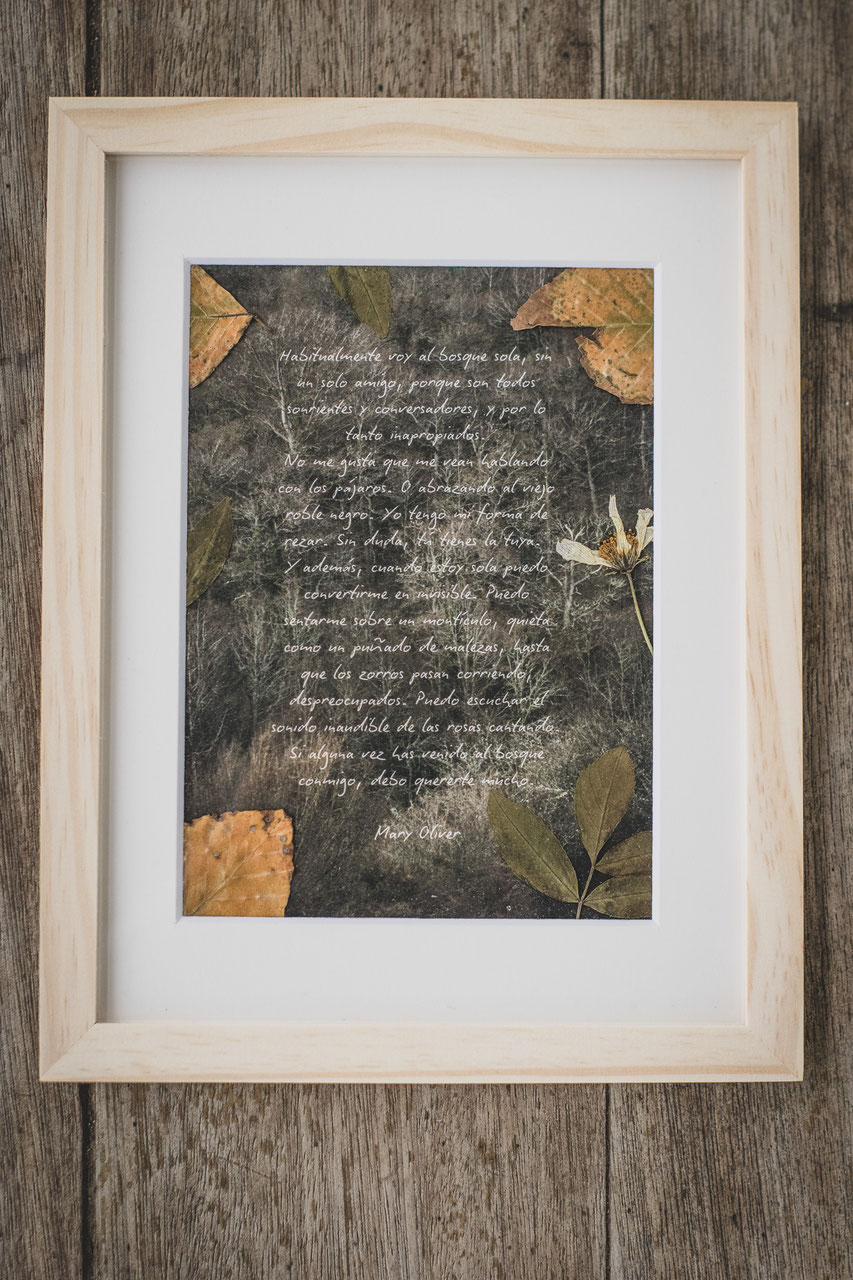 Habitualmente voy al bosque sola, sin
un solo amigo, porque son todos
sonrientes y conversadores, y por lo
tanto inapropiados.
No me gusta que me vean hablando
con los pájaros. O abrazando al viejo
roble negro. Yo tengo mi forma de
rezar. Sin duda, tú tienes la tuya.
Y además, cuando estoy sola puedo
convertirme en invisible. Puedo
sentarme sobre un montículo, quieta
como un puñado de malezas, hasta
que los zorros pasan corriendo,
despreocupados. Puedo escuchar el
sonido inaudible de las rosas cantando.
Si alguna vez has venido al bosque
conmigo, debo quererte mucho.
Mary Oliver